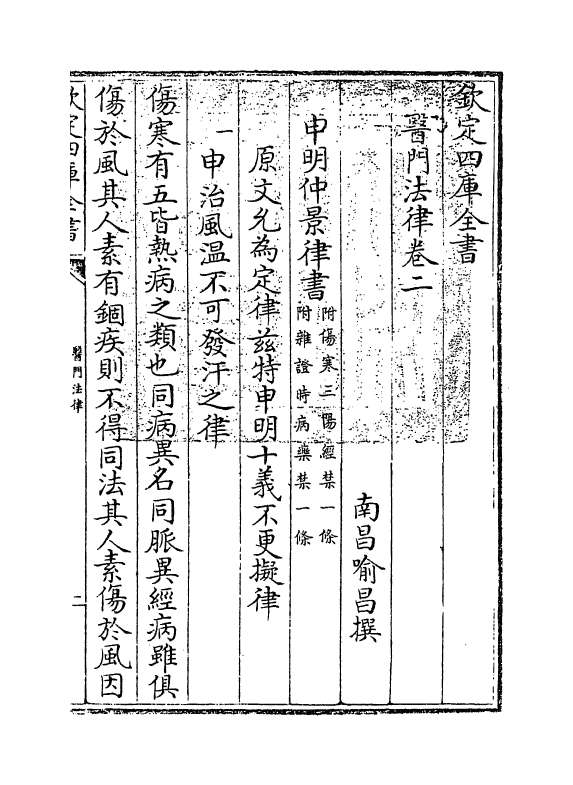 欽定四庫全書
醫門法律卷二
南昌喻昌撰
申明仲景律書附傷寒三陽經禁一條
附雜證時病藥禁一條
原文允為定律兹特申明十義不更擬律
一申治風温不可發汗之律
傷寒有五皆熱病之類也同病異名同脈異經病雖俱
傷於風其人素有錮疾則不得同法其人素傷於風因
欽定四庫全書
醫門法律
二